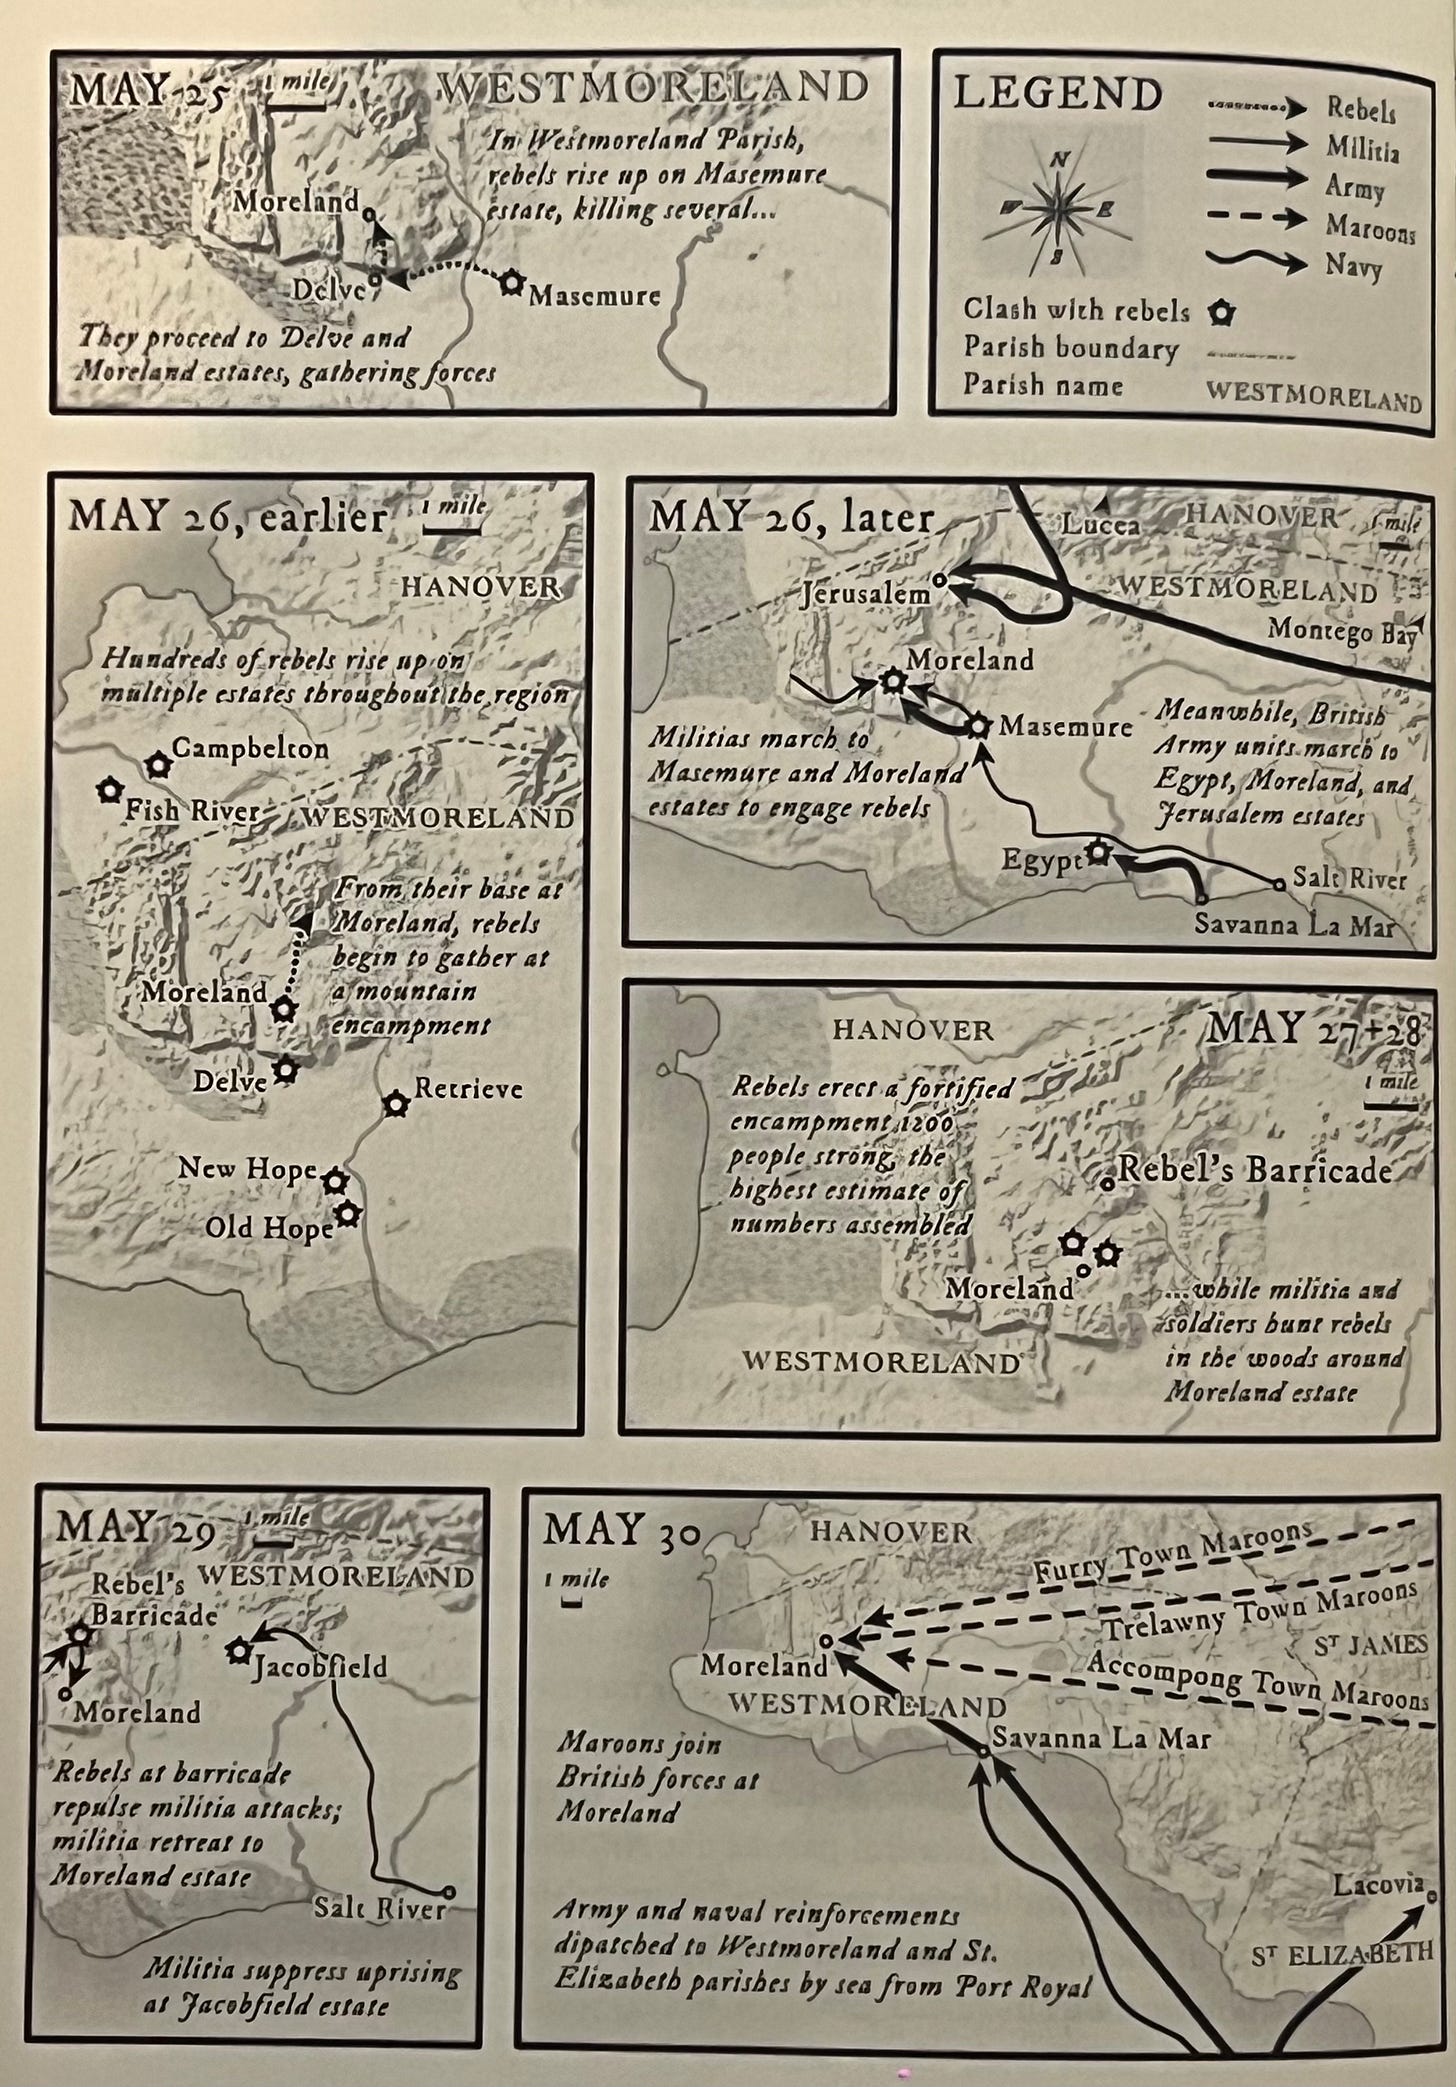 MAY 25
1 mile
WESTMORELAND
In Westmoreland Parish,
rebels rise up on Masemure
estate, killing several...
Moreland
Delve
Masemure
They proceed to Delve and
Moreland estates, gathering forces
LEGEND
N
W
E
S
Rebels
Militia
Army
Maroons
Navy
Clash with rebels
Parish boundary
Parish name
WESTMORELAND
MAY 26, earlier
1 mile
HANOVER
Hundreds of rebels rise up on
multiple estates throughout the region
Campbelton
Fish River
WESTMORELAND
From their base at
Moreland, rebels
begin to gather at
a mountain
encampment
Moreland
Delve
Retrieve
New Hope
Old Hope
MAY 26, later
Lucea
HANOVER
1 mile
Jerusalem
WESTMORELAND
Montego Bay
Moreland
Masemure
Militias march to
Masemure and Moreland
estates to engage rebels
Meanwhile, British
Army units march to
Egypt, Moreland, and
Jerusalem estates
Egypt
Salt River
Savanna La Mar
HANOVER
MAY 27+28
1 mile
Rebels erect a fortified
encampment 1200
people strong, the
highest estimate of
numbers assembled
Rebel's Barricade
Moreland
...while militia and
soldiers hunt rebels
in the woods around
Moreland estate
WESTMORELAND
MAY 29
1 mile
Rebel's
Barricade
WESTMORELAND
Jacobfield
Moreland
Rebels at barricade
repulse militia attacks;
militia retreat to
Moreland estate
Salt River
Militia suppress uprising
at Jacobfield estate
MAY 30
1 mile
HANOVER
Furry Town Maroons
Trelawny Town Maroons
ST JAMES
Accompong Town Maroons
Moreland
WESTMORELAND
Savanna La Mar
Maroons join
British forces at
Moreland
Lacovia
ST ELIZABETH
Army and naval reinforcements
dipatched to Westmoreland and St.
Elizabeth parishes by sea from Port Royal